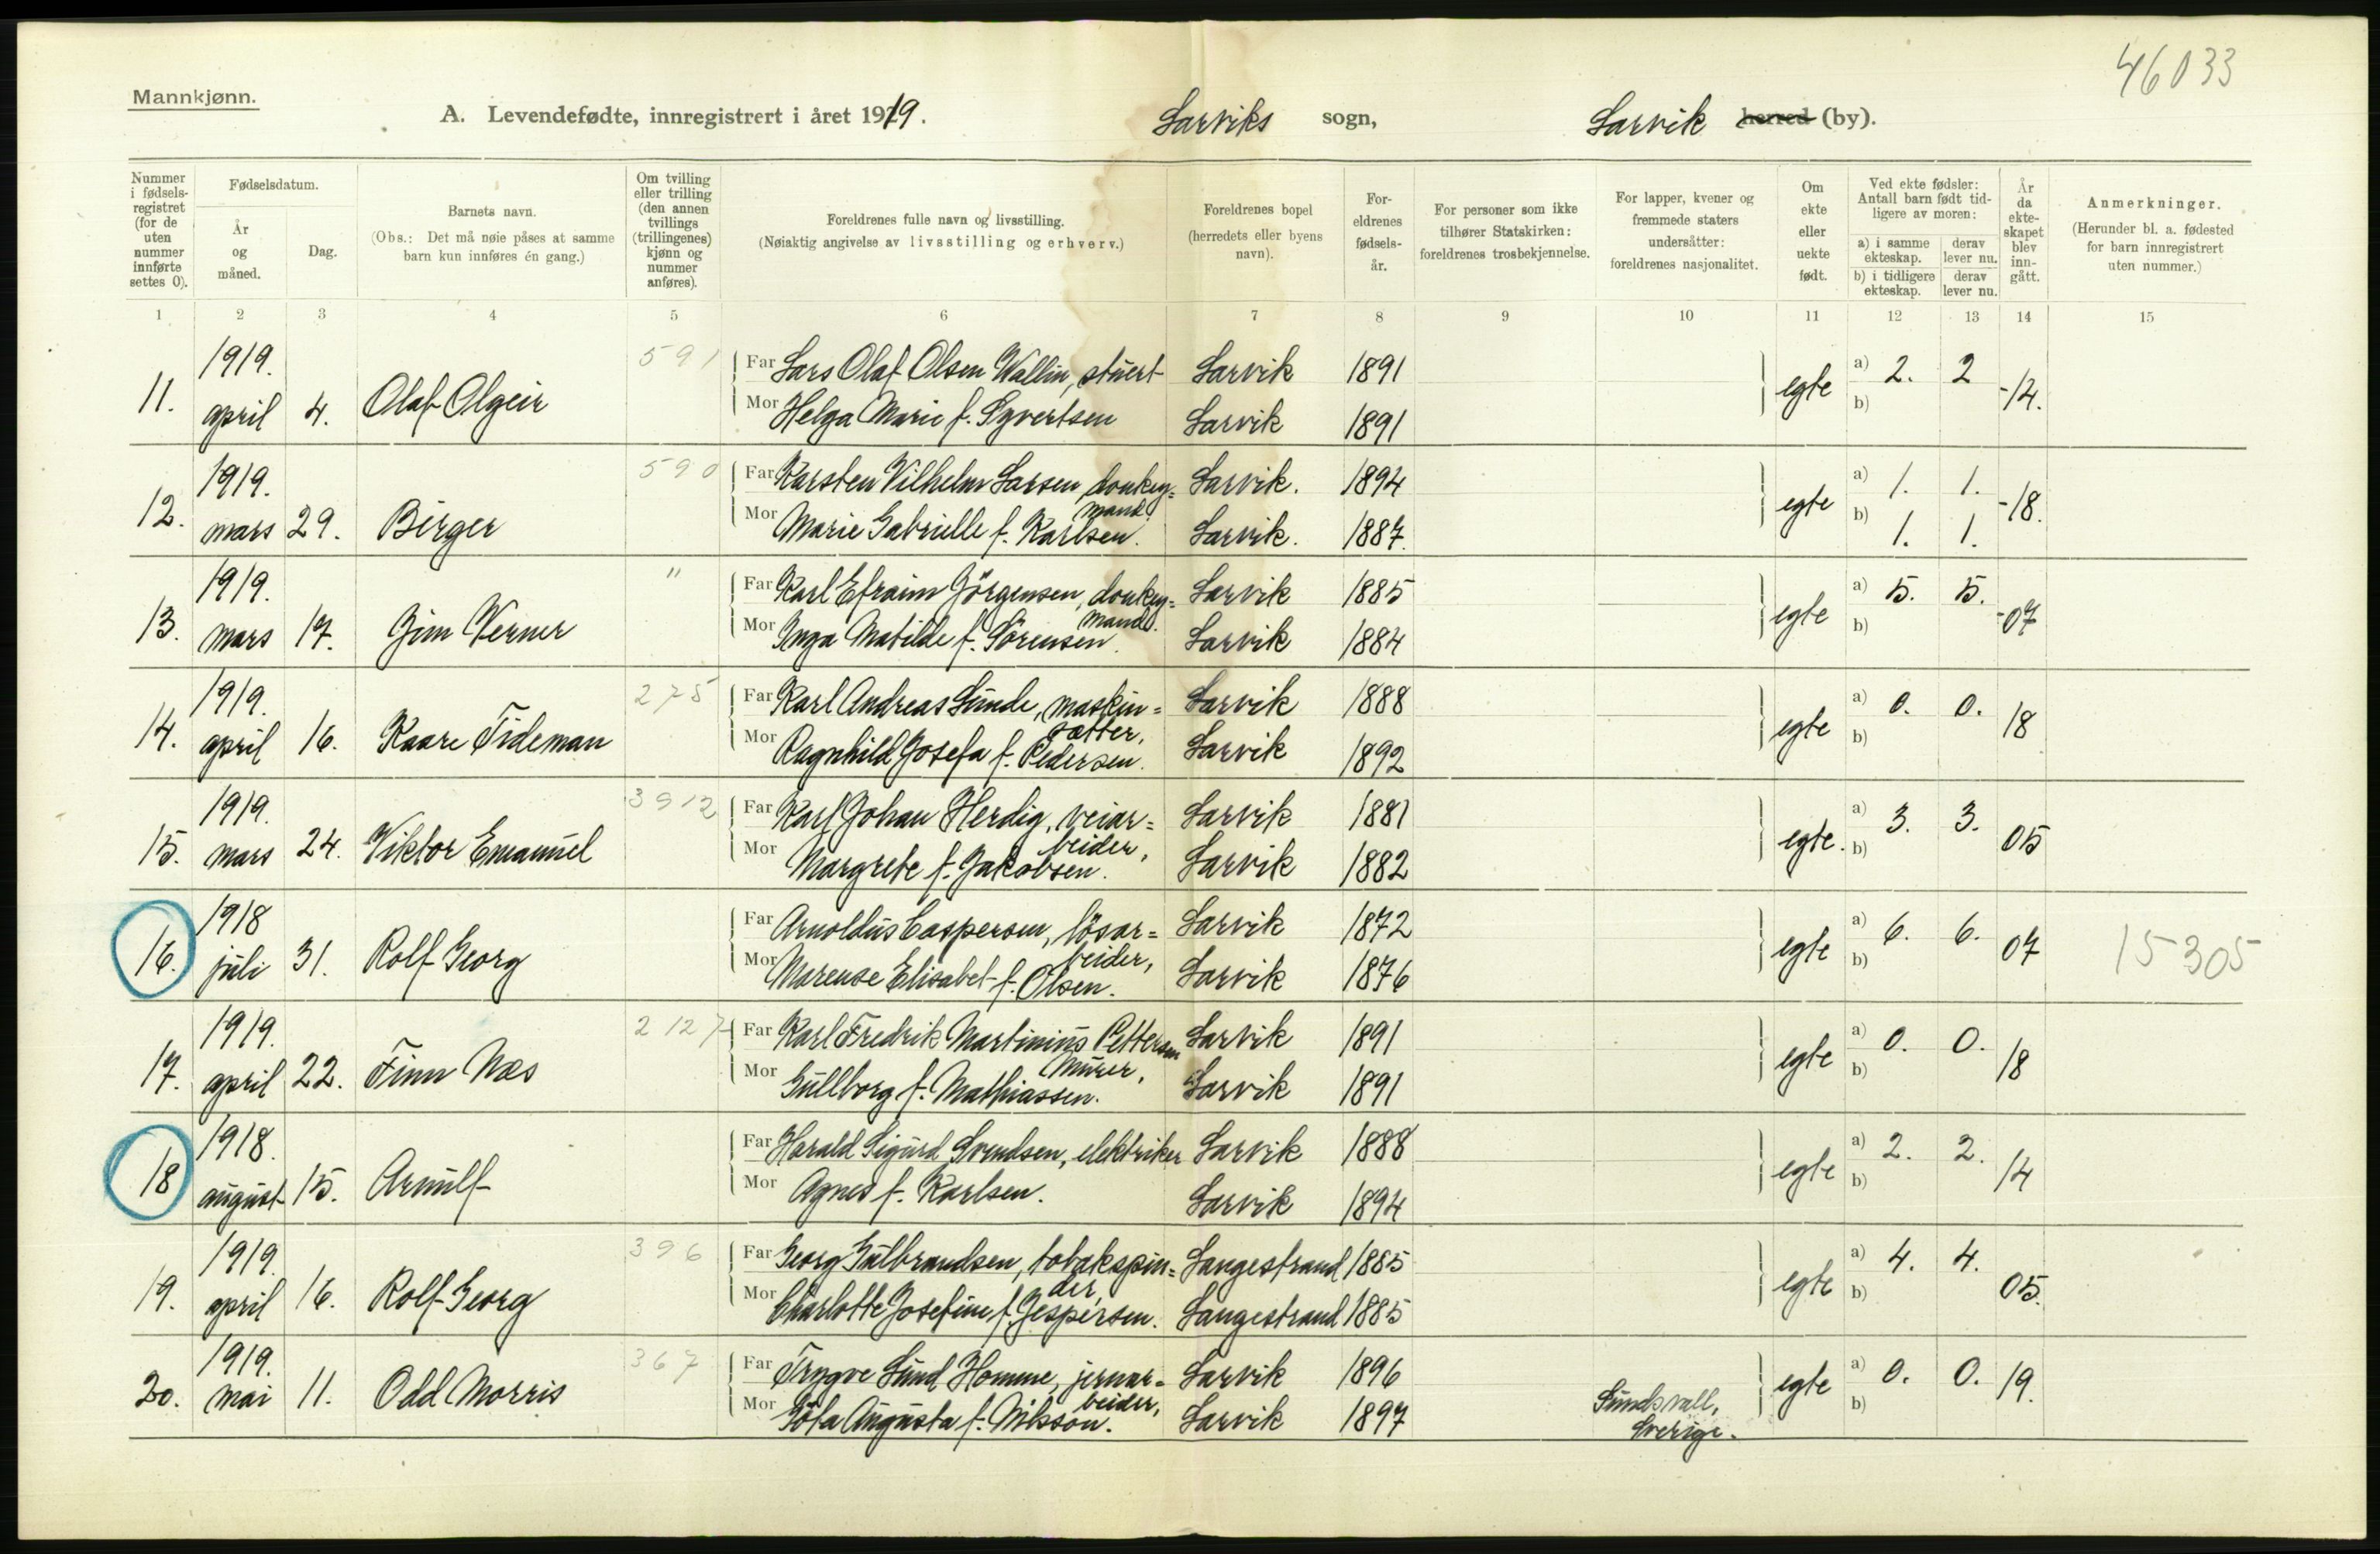 46033
Mannkjønn.
A. Levendefødte, innregistrert i året 1919. Larviks sogn, Larvik herred (by).
Nummer i fødselsregistret (for de uten nummer innførte settes 0).
Fødselsdatum.
År og måned.
Dag.
Barnets navn.
(Obs.: Det må nøie påses at samme barn kun innføres én gang.)
Om tvilling eller trilling (den annen tvillings (trillingenes) kjønn og nummer anføres).
Foreldrenes fulle navn og livsstilling.
(Nøiaktig angivelse av livsstilling og erhverv.)
Foreldrenes bopel (herredets eller byens navn).
Foreldrenes fødselsår.
For personer som ikke tilhører Statskirken: foreldrenes trosbekjennelse.
For lapper, kvener og fremmede staters undersåtter: foreldrenes nasjonalitet.
Om ekte eller uekte født.
Ved ekte fødsler: Antall barn født tidligere av moren:
a) i samme ekteskap. derav lever nu.
b) i tidligere ekteskap. derav lever nu.
År da ekteskapet blev inngått.
Anmerkninger.
(Herunder bl. a. fødested for barn innregistrert uten nummer.)
1 2 3 4 5 6 7 8 9 10 11 12 13 14 15
11. 1919. april 4. Olaf Olgeir 591 Far Lars Olaf Olsen Wallin, stuert Larvik 1891 egte a) 2. 2 -14.
Mor Helga Marie f. Syvertsen Larvik 1891 b)
12. 1919. mars 29. Birger 590 Far Karsten Vilhelm Larsen, donkey=mand Larvik. 1894 egte a) 1. 1. -18.
Mor Marie Gabrielle f. Karlsen. Larvik. 1887. b) 1. 1.
13. 1919. mars 17. Jim Verner " Far Karl Efraim Jörgensen, donkey=mand. Larvik 1885 egte a) 5. 5. -07
Mor Inga Matilde f. Sörensen. Larvik 1884 b)
14. 1919. april 16. Kaare Tideman 275 Far Karl Andreas Lunde, maskin=sætter, Larvik 1888 egte a) 0. 0. 18
Mor Ragnhild Josefa f. Pedersen. Larvik 1892 b)
15. 1919. mars 24. Viktor Emanuel 3912 Far Karl Johan Herdig, veiar=beider, Larvik 1881 egte. a) 3. 3. 05
Mor Margrete f. Jakobsen. Larvik 1882 b)
16. 1918 juli 31. Rolf Georg Far Arnoldus Caspersen, lösar=beider, Larvik 1872 egte a) 6. 6. 07 15305
Mor Marense Elisabet f. Olsen. Larvik 1876 b)
17. 1919. april 22. Finn Næs 2127 Far Karl Fredrik Martinius Pettersen Murer, Larvik 1891 egte a) 0. 0. 18
Mor Gullborg f. Mathiassen. Larvik 1891 b)
18 1918. august 15. Arnulf Far Harald Sigurd Svendsen, elektriker Larvik 1888 egte a) 2. 2. 14
Mor Agnes f. Karlsen. Larvik 1894 b)
19. 1919. april 16. Rolf Georg 396 Far Georg Gulbrandsen, tobakspin=der, Langestrand 1885 egte a) 4. 4. 05.
Mor Charlotte Josefine f. Jespersen. Langestrand 1885 b)
20. 1919. mai 11. Odd Morris 367 Far Trygve Lund Homme, jernar=beider, Larvik 1896 egte a) 0. 0. 19.
Mor Göta Augusta f. Nilsson. Larvik 1897 Sundsvall, Sverige. b)